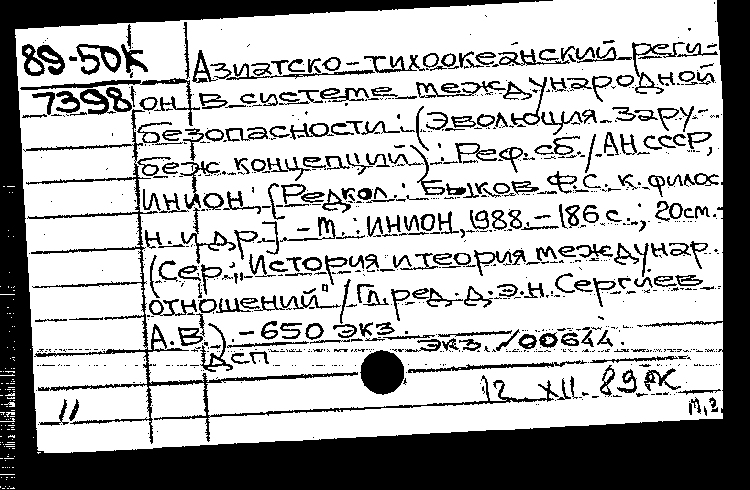 89-50К Азиатско-тихоокеанский реги-
7398 он в системе международной
безопасности: (Эволюция зару-
беж. концепций): Реф. сб. / АН СССР,
ИНИОН; [Редкол.: Быков Ф.С. к. филос.
н. и др.]. - М.: ИНИОН, 1988. - 186 с.; 20см. -
(Сер.: "История и теория междунар.
отношений" / Гл. ред. д.э.н. Сергиев
А.В.). - 650 экз.
ДСП экз. №00644.
12 XII. 89
11